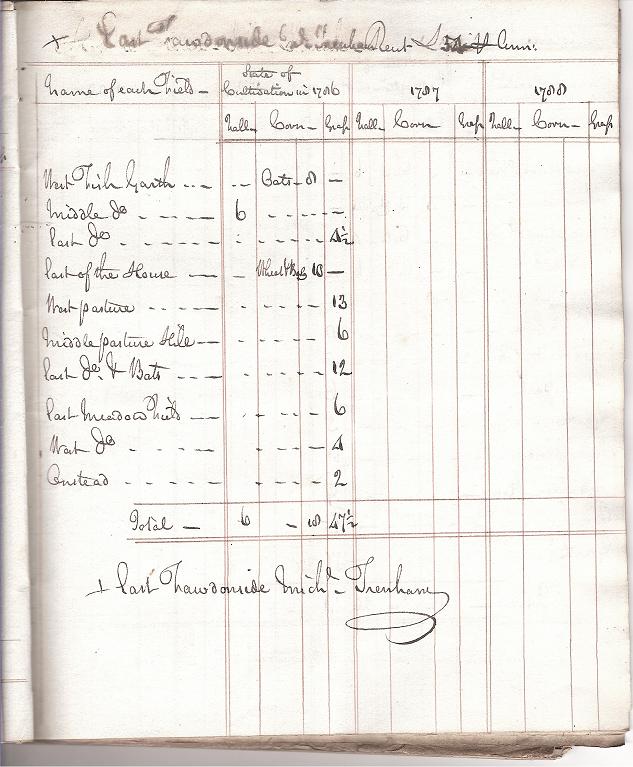 + East Fawdonside Trenham Rent £54 ⅌ Ann:
Name of each Field – State of Cultivation in 1786 1787 1788
Fall– Corn– Grass Fall– Corn– Grass Fall– Corn– Grass
West Fish Garth --- -- Oats – 8 –
Middle Do - - - - — 6 - - - - -
East Do - - - - — - - - - - 4½
East of the House — – Wheat & 10 –
West pasture - - — - - - - — 13
Middle pasture — - - - - — 6
East Do & Bats - - — - - - - — 12
East Meadow Field — - - - - — 6
West Do - - - — - - - - — 4
Onstead - - - - - — - - - - — 2
Total – 6 – 18 47½
+ East Fawdonside Michl– Trenham